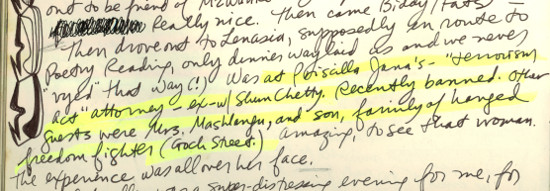 out to be friend of
Really nice. Then came Biday/Fats
Then drove out to Lenasia, supposedly en route to
Poetry Reading, only dinner waylaid us and we never
"ryed" that way(!) Was at Priscilla Jana's - "terrorism
act" attorney - ex-w/ Shun Chetty. Recently banned. Other
guests were Mrs. Mashlengu, and son, family of hanged
freedom fighter (Goch Street.) amazing, to see that woman.
The experience was all over her face.
distressing evening for me, for